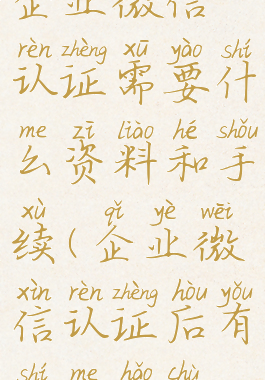 企业微信
rèn zhèng xū yào shí
认证需要什
me zī liào hé shǒu
么资料和手
xù qǐ yè wēi
续(企业微
xìn rèn zhèng hòu yǒu
信认证后有
shí me hǎo chù